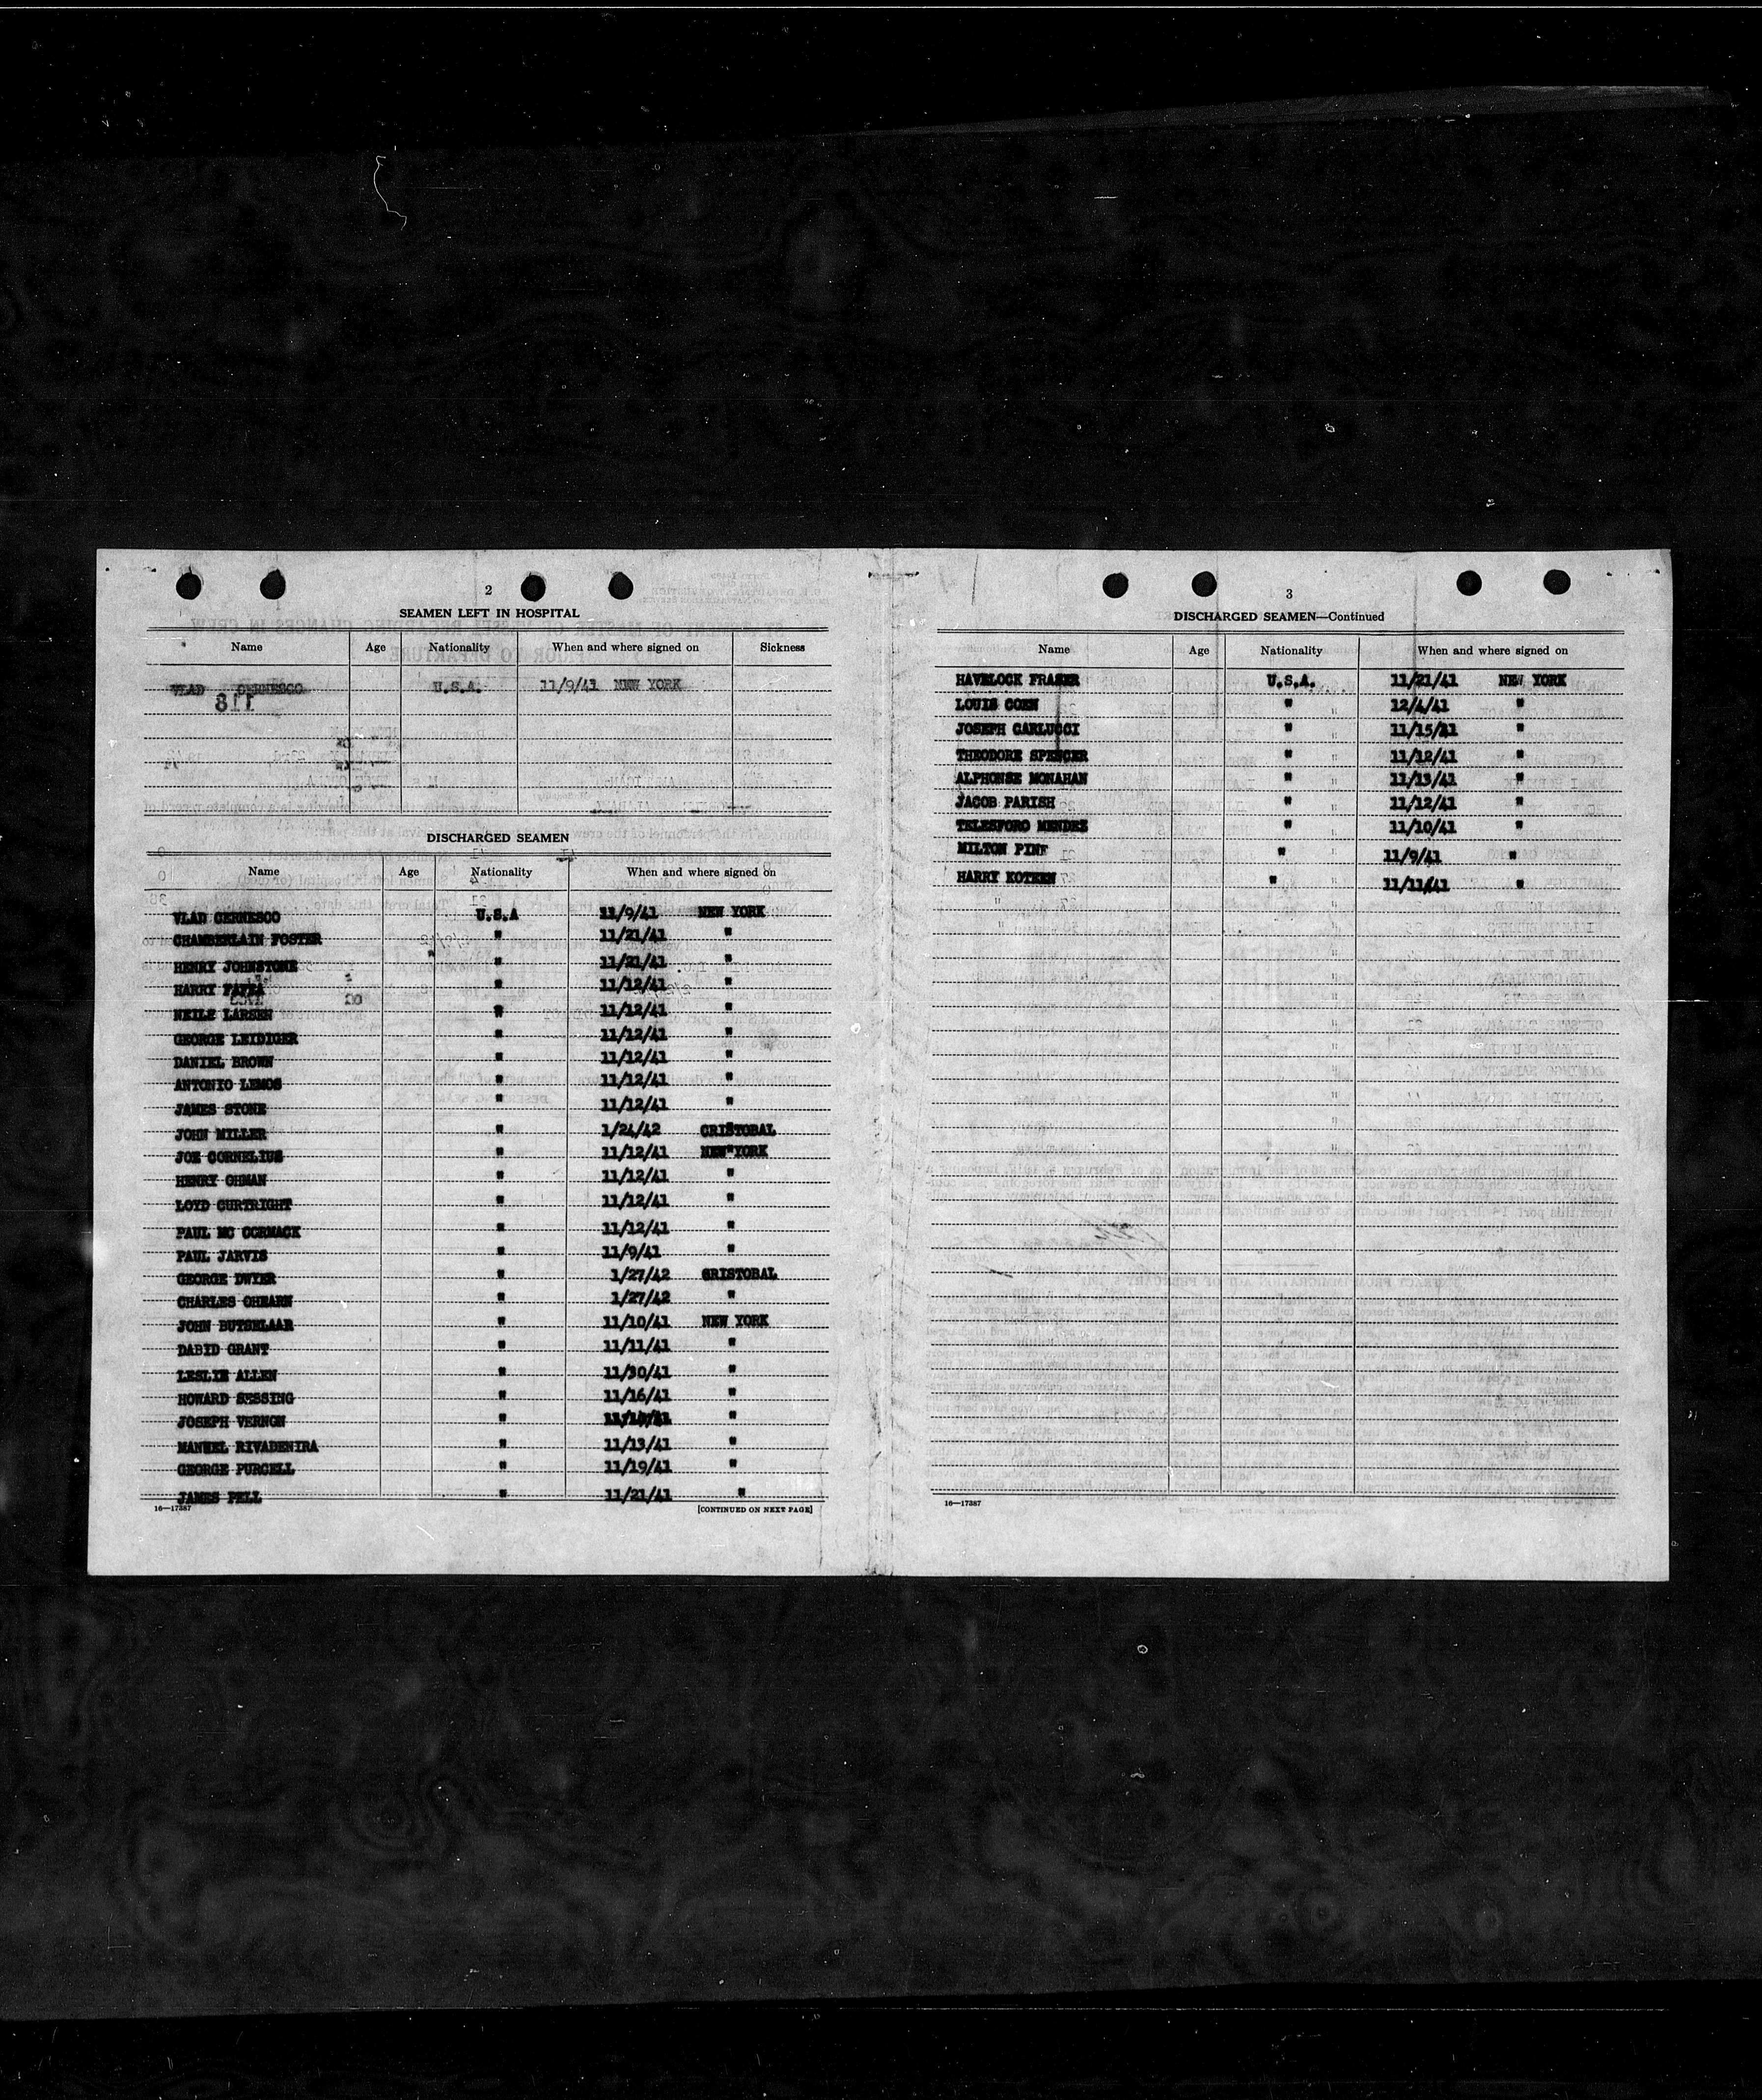 2
SEAMEN LEFT IN HOSPITAL
Name Age Nationality When and where signed on Sickness
VLAD CERNESCO U.S.A. 11/9/41 NEW YORK
DISCHARGED SEAMEN
Name Age Nationality When and where signed on
VLAD CERNESCO U.S.A 11/9/41 NEW YORK
CHAMBERLAIN FOSTER " 11/21/41 "
HENRY JOHNSTONE " 11/21/41 "
HARRY " 11/12/41 "
NEILS LARSEN " 11/12/41 "
GEORGE LEIDIGER " 11/12/41 "
DANIEL BROWN " 11/12/41 "
ANTONIO LEMOS " 11/12/41 "
JAMES STONE " 11/12/41 "
JOHN MILLER " 1/24/42 CRISTOBAL
JOE CORNELIUS " 11/12/41 NEW YORK
HENRY OHMAN " 11/12/41 "
LOYD CURTRIGHT " 11/12/41 "
PAUL MC CORMACK " 11/12/41 "
PAUL JARVIS " 11/9/41 "
GEORGE DWYER " 1/27/42 CRISTOBAL
CHARLES OHEARN " 1/27/42 "
JOHN BUTSELAAR " 11/10/41 NEW YORK
DABID GRANT " 11/11/41 "
LESLIE ALLEN " 11/30/41 "
HOWARD SESSING " 11/16/41 "
JOSEPH VERNON " "
MANUEL RIVADENIRA " 11/13/41 "
GEORGE PURCELL " 11/19/41 "
JAMES PELL " 11/21/41 "
16—17387 [CONTINUED ON NEXT PAGE]
3
DISCHARGED SEAMEN—Continued
Name Age Nationality When and where signed on
HAVELOCK FRASER U.S.A. 11/21/41 NEW YORK
LOUIS COEN " 12/4/41 "
JOSEPH CARLUCCI " 11/15/41 "
THEODORE SPENCER " 11/12/41 "
ALPHONSE MONAHAN " 11/13/41 "
JACOB PARISH " 11/12/41 "
TELESFORO MENDEZ " 11/10/41 "
MILTON PINE " 11/9/41 "
HARRY KOTEEN " 11/11/41 "
16—17387